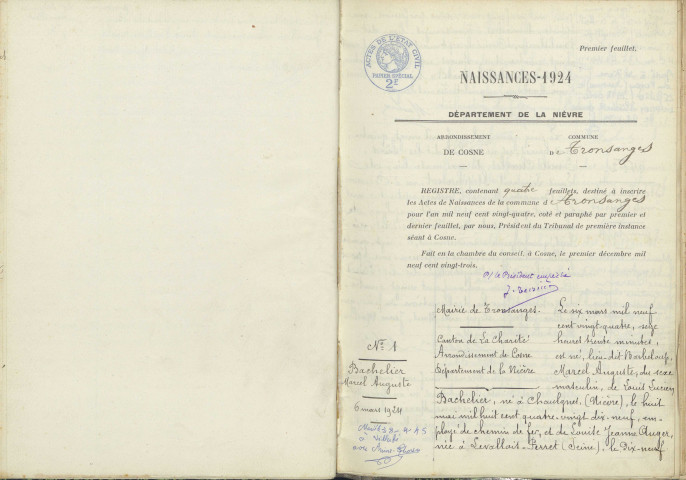 Premier feuillet.
ACTES DE L'ÉTAT CIVIL
PAPIER SPÉCIAL
2F
NAISSANCES-1924
DÉPARTEMENT DE LA NIÈVRE
ARRONDISSEMENT
DE COSNE
COMMUNE
de Tronsanges
REGISTRE, contenant quatre feuillets, destiné à inscrire
les Actes de Naissances de la commune de Tronsanges
pour l'an mil neuf cent vingt-quatre, coté et paraphé par premier et
dernier feuillet, par nous, Président du Tribunal de première instance
séant à Cosne.
Fait en la chambre du conseil, à Cosne, le premier décembre mil
neuf cent vingt-trois.
P/ le Président empêché
N° 1
Bachelier
Marcel Auguste
6 mars 1924
Mairie de Tronsanges.
Canton de La Charité
Arrondissement de Cosne
Département de la Nièvre
Le six mars mil neuf
cent vingt-quatre, seize
heures trente minutes,
est né, lieu-dit
Marcel Auguste, du sexe
masculin, de Louis Lucien
Bachelier, né à Chaulgnes, (Nièvre), le huit
mai mil huit cent quatre-vingt dix-neuf, em-
ployé de chemin de fer, et de Louise Jeanne Auger,
née à Levallois-Perret (Seine), le Dix-neuf